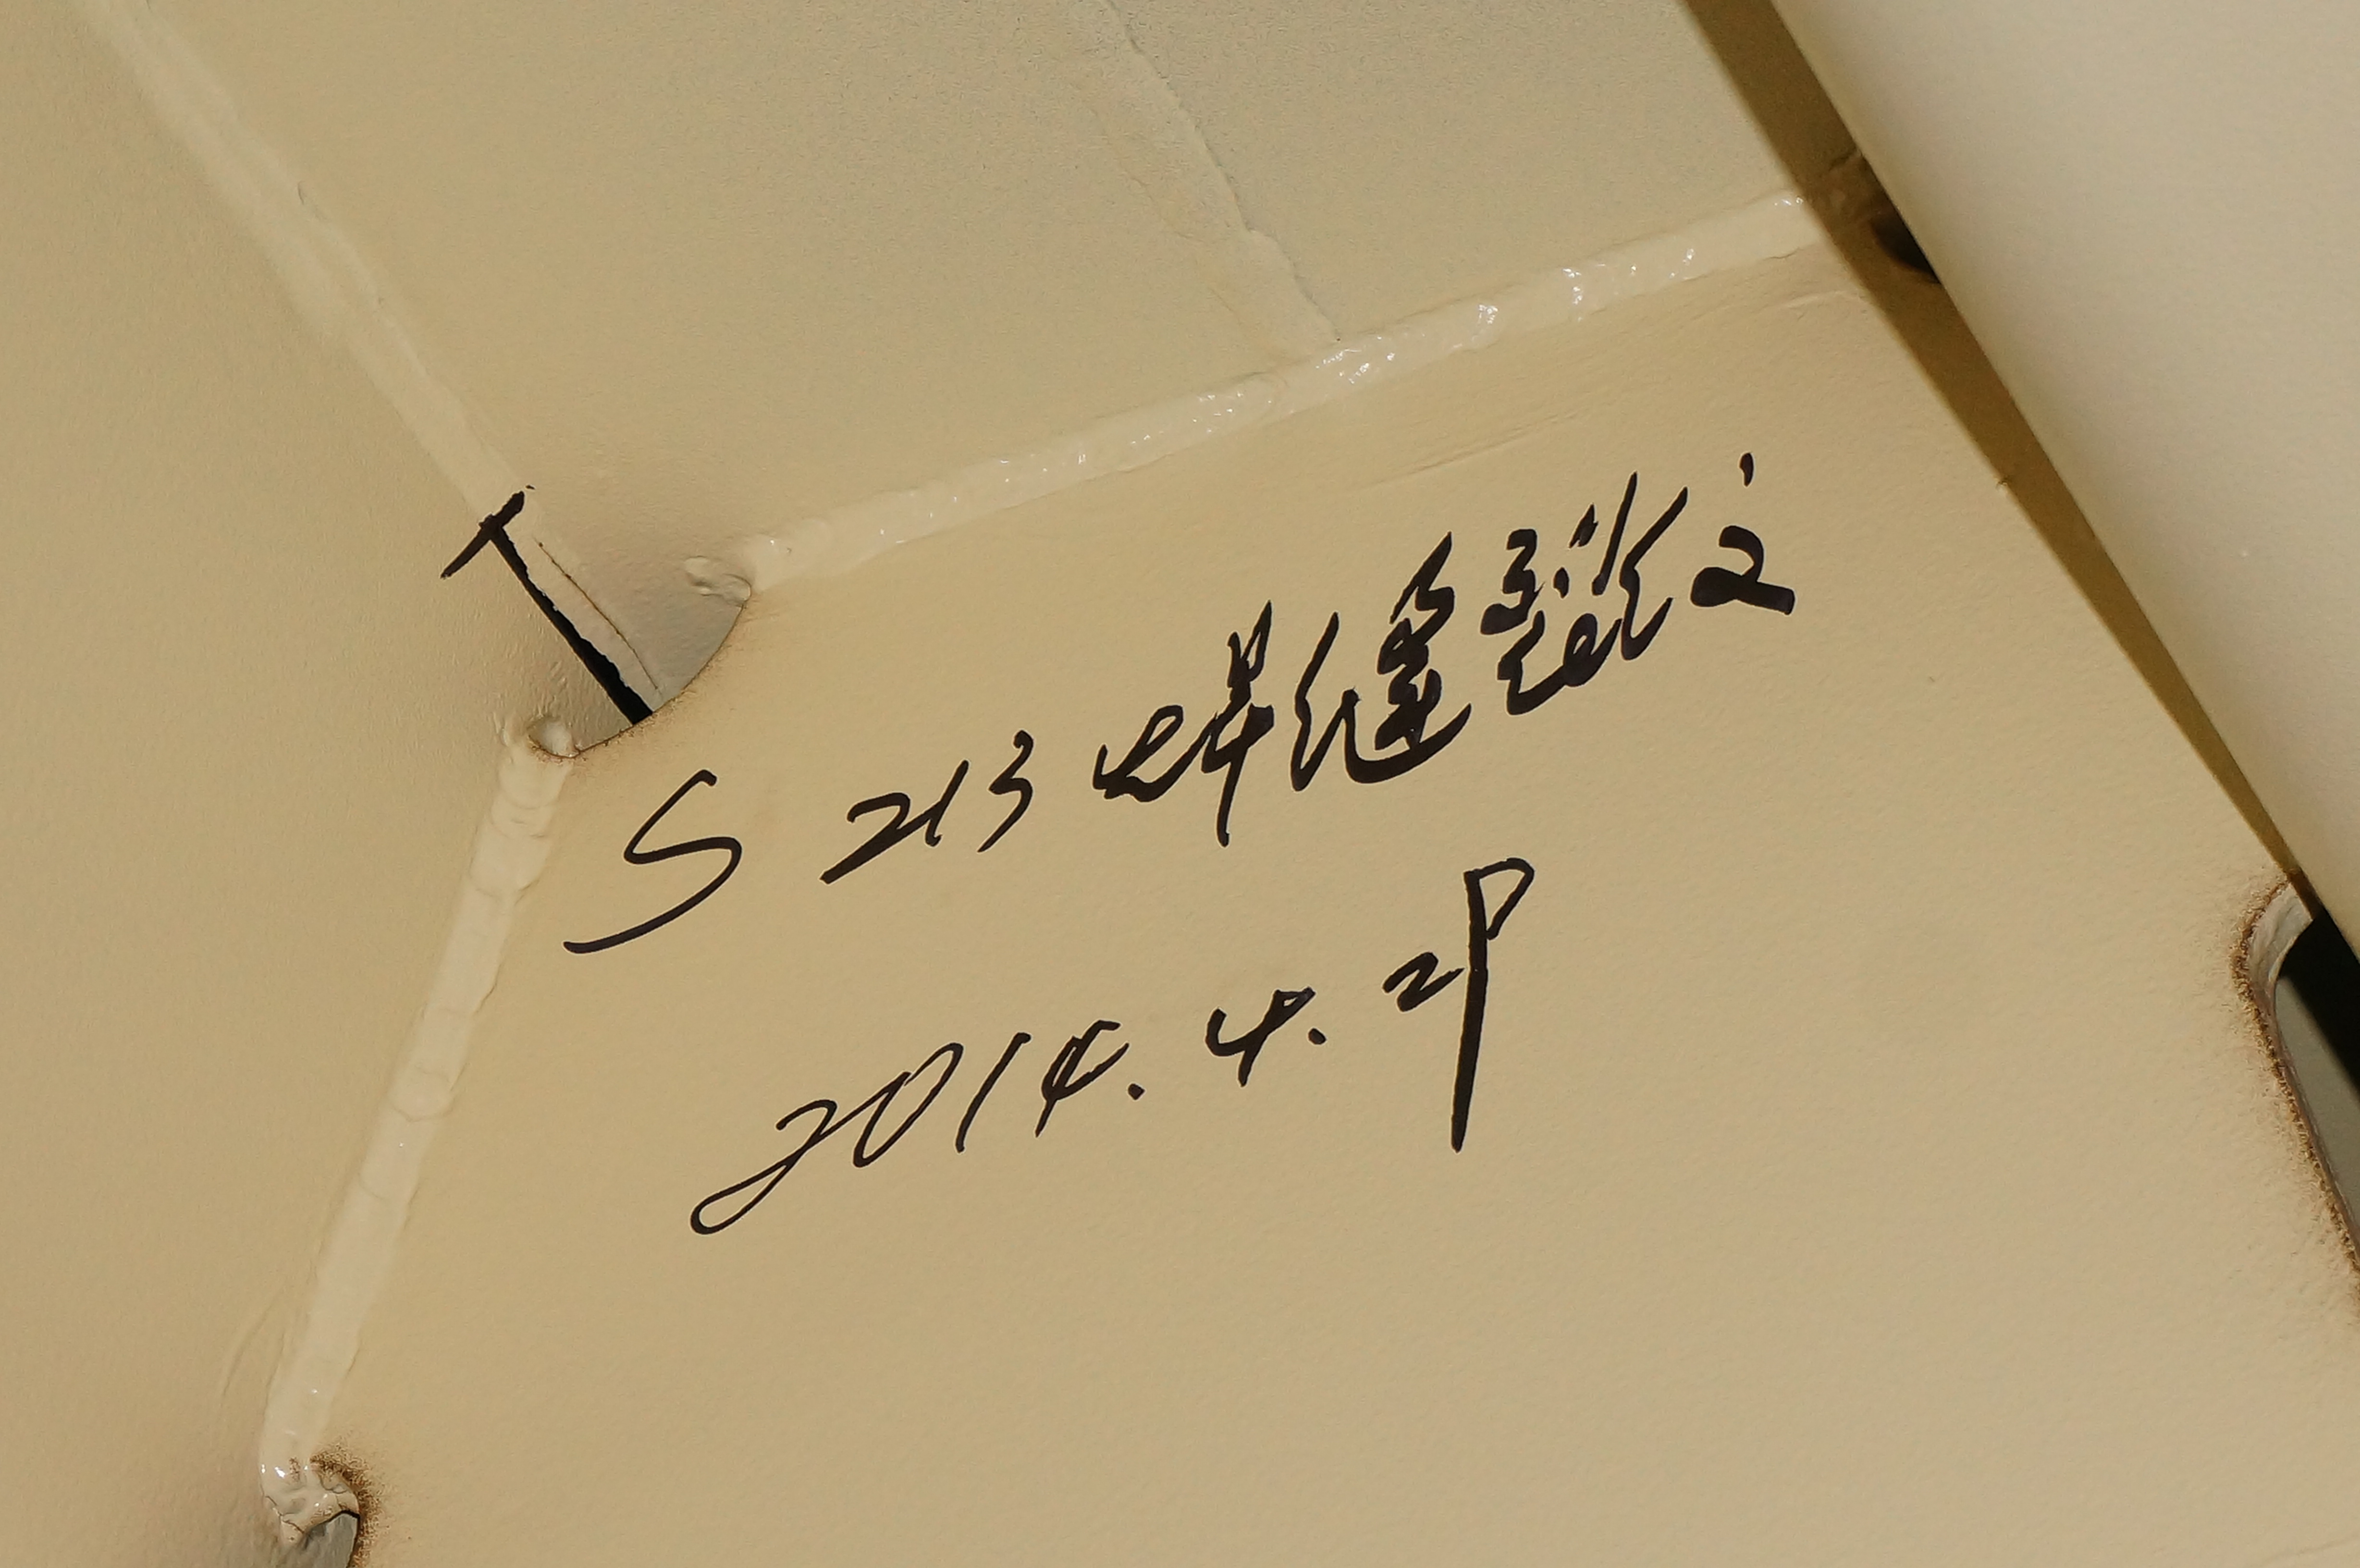 S 213 焊缝裂纹
2014.4.29